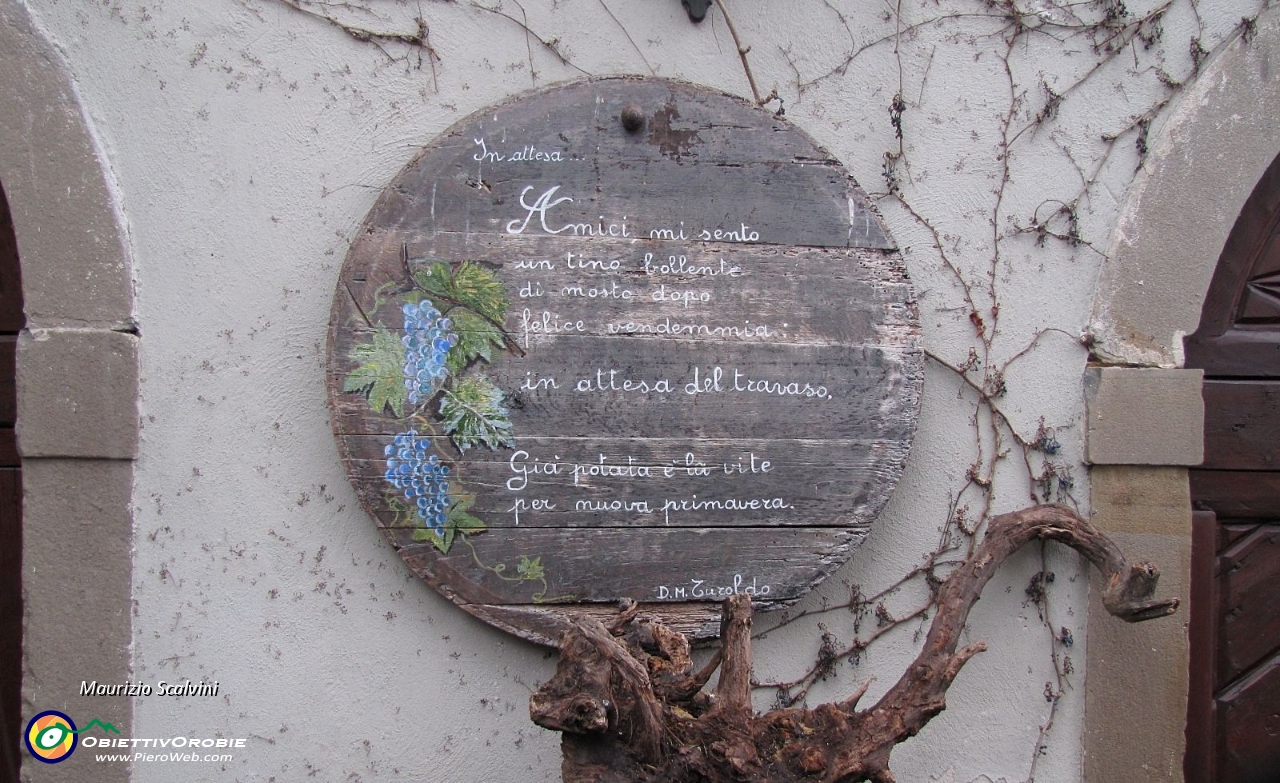 In attesa...
Amici mi sento
un tino bollente
di mosto dopo
felice vendemmia:
in attesa del travaso.
Già potata è la vite
per nuova primavera.
D.M. Turoldo
Maurizio Scalvini
OBIETTIVOROBIE
www.PieroWeb.com